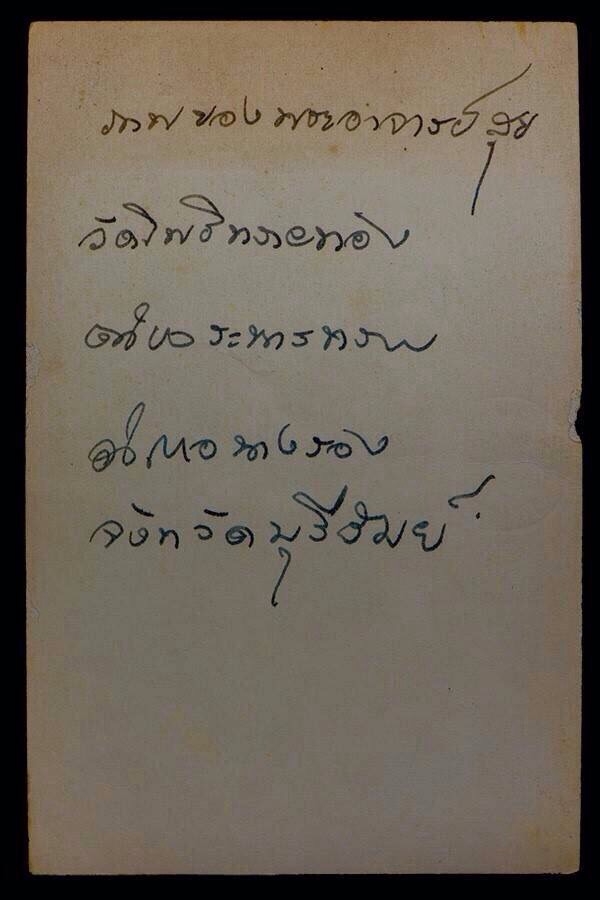 ภาพของพระอาจารย์สุข
วัดโพธิทรายทอง
ตำบลระหารทราย
อำเภอนางรอง
จังหวัดบุรีรัมย์